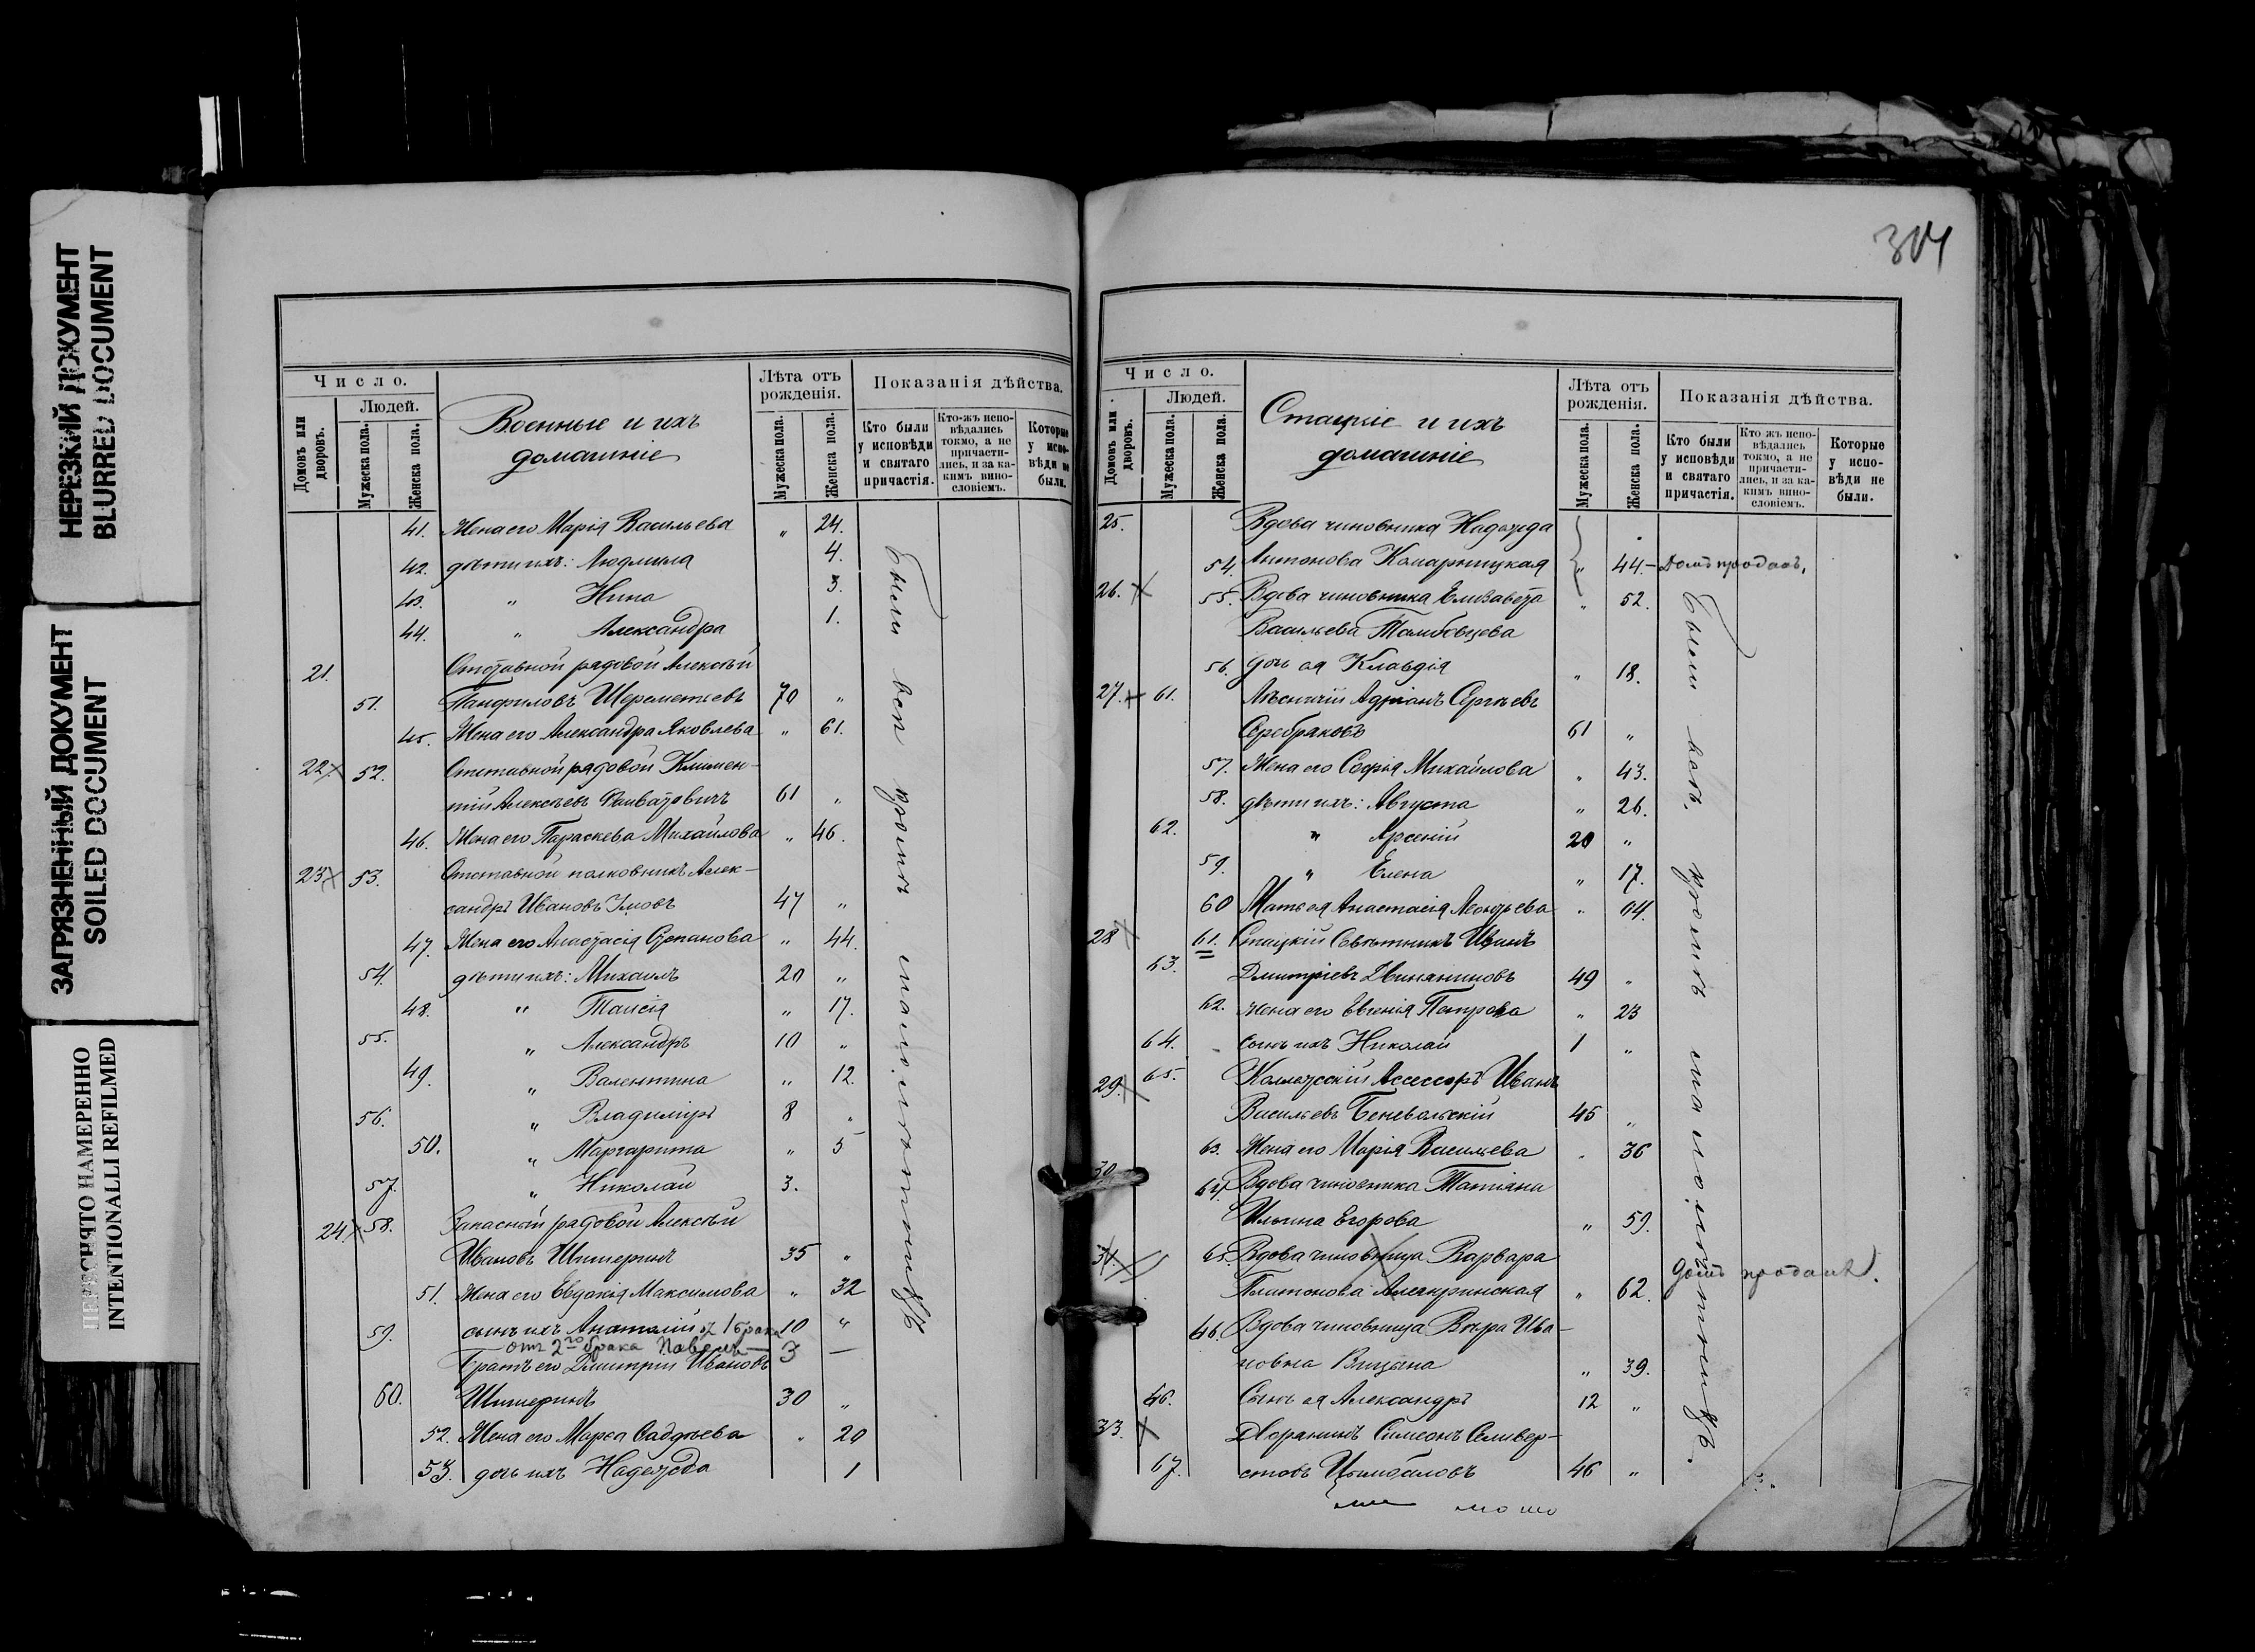 НЕРЕЗКИЙ ДОКУМЕНТ
BLURRED DOCUMENT
ЗАГРЯЗНЕННЫЙ ДОКУМЕНТ
SOILED DOCUMENT
ПЕРЕСНЯТО НАМЕРЕННО
INTENTIONALLI REFILMED
Число.
Людей.
Домовъ или дворовъ.
Мужеска пола.
Женска пола.
Военные и ихъ
домашніе
Лѣта отъ рожденія.
Мужеска пола.
Женска пола.
Показанія дѣйства.
Кто были у исповѣди и святаго причастія.
Кто-жъ исповѣдались токмо, а не причастились, и за какимъ винословіемъ.
Которые у исповѣди не были.
41. Жена его Марія Васильева " 24.
42. дѣти ихъ: Людмила 4.
43. " Нина 3.
44. " Александра 1.
21. Отставной рядовой Алексѣй
51. Панфиловъ Шереметьевъ 70 "
45. Жена его Александра Яковлева " 61.
22 52. Отставной рядовой Климен-
тій Алексѣевъ 61 "
46. Жена его Параскева Михайлова " 46.
23 53. Отставной полковникъ Алек-
сандръ Ивановъ 47 "
47. Жена его Анастасія Степанова " 44.
54. дѣти ихъ: Михаилъ 20 "
48. " Таисія " 17.
55. " Александръ 10 "
49. " Валентина " 12.
56. " Владиміръ 8 "
50. " Маргарита " 5
57. " Николай 3.
24 58. Запасный рядовой Алексѣй
Ивановъ Шишеринъ 35 "
51. Жена его Евдокія Максимова " 32
59. сынъ ихъ Анатолій 1 брака 10 "
отъ 2го брака Павелъ — 3 —
Братъ его Дмитрій Ивановъ
60. Шишеринъ 30 "
52. Жена его Марѳа " 20
53. дочь ихъ Надежда 1
Были всѣ
304
Число.
Людей.
Домовъ или дворовъ.
Мужеска пола.
Женска пола.
Статскіе и ихъ
домашніе
Лѣта отъ рожденія.
Мужеска пола.
Женска пола.
Показанія дѣйства.
Кто были у исповѣди и святаго причастія.
Кто жъ исповѣдались токмо, а не причастились, и за какимъ винословіемъ.
Которые у исповѣди не были.
25. Вдова чиновника Надежда
54. Антонова Комарницкая " 44.— Домъ проданъ,
26. 55. Вдова чиновника Елизавета " 52.
Васильева Тамбовцева
56. дочь ея Клавдія " 18.
27. 61. Лѣсничій Адріанъ Сергѣевъ
Серебряковъ 61 "
57. Жена его Софія Михайлова " 43.
58. дѣти ихъ: Августа " 26.
62. " Арсеній 20 "
59. " Елена " 17.
60 Мать ея Анастасія Леонтьева "
28 61. Статскій Совѣтникъ Иванъ
63. Дмитріевъ 49 "
62. Жена его Евгенія Петрова " 23
64. сынъ ихъ Николай 1 "
29. 65. Коллежскій Ассессоръ Иванъ
Васильевъ Беневольскій 45 "
63. Жена его Марія Васильева " 36
30 64. Вдова чиновника Татіана
Ильина Егорова " 59.
31. 65. Вдова чиновница Варвара
Платонова " 62. домъ проданъ.
46. Вдова чиновница Вѣра Ива-
новна " 39.
46. Сынъ ея Александръ 12 "
33. Дворянинъ Симеонъ Селивер-
67. стовъ 46 "
Были всѣ